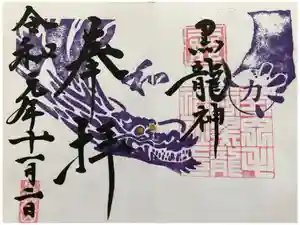 黒龍神
奉拝
令和元年十一月二日
和
カ